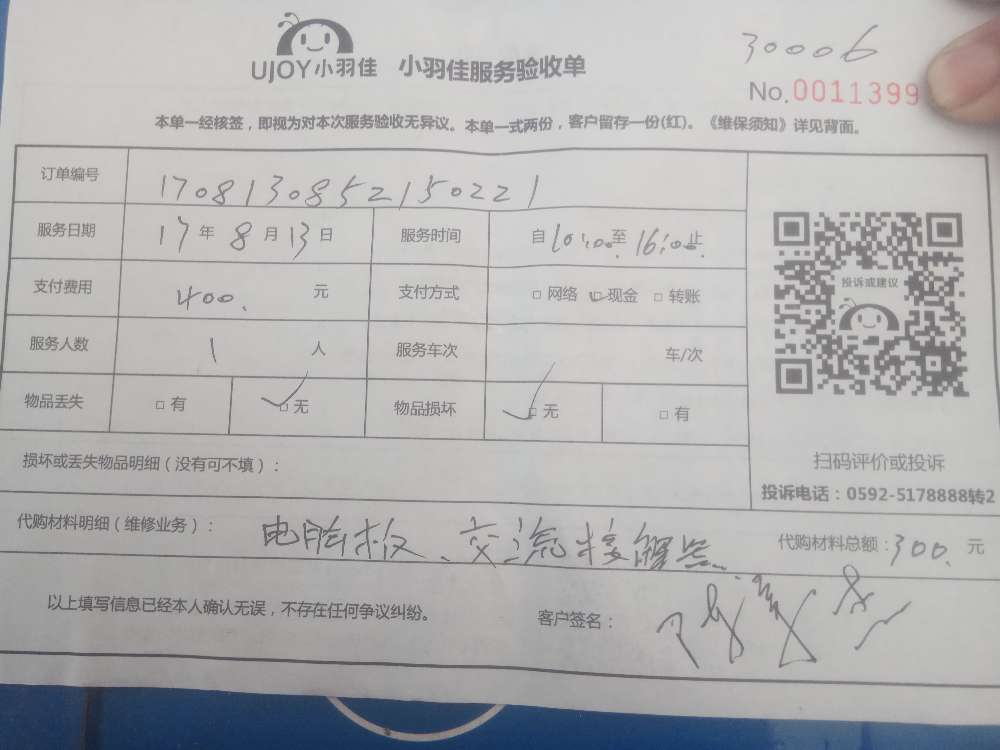 30006
UJOY小羽佳 小羽佳服务验收单
No.0011399
本单一经核签，即视为对本次服务验收无异议。本单一式两份，客户留存一份(红)。《维保须知》详见背面。
订单编号 170813085215022​1
服务日期 17年8月13日 服务时间 自10:00至16:00止
支付费用 400.元 支付方式 □网络 ☑现金 □转账
服务人数 1人 服务车次 车/次
物品丢失 □有 ☑无 物品损坏 ☑无 □有
投诉或建议
损坏或丢失物品明细（没有可不填）：
扫码评价或投诉
投诉电话：0592-5178888转2
代购材料明细（维修业务）： 电脑板、交流接触器. 代购材料总额：300.元
以上填写信息已经本人确认无误，不存在任何争议纠纷。 客户签名：